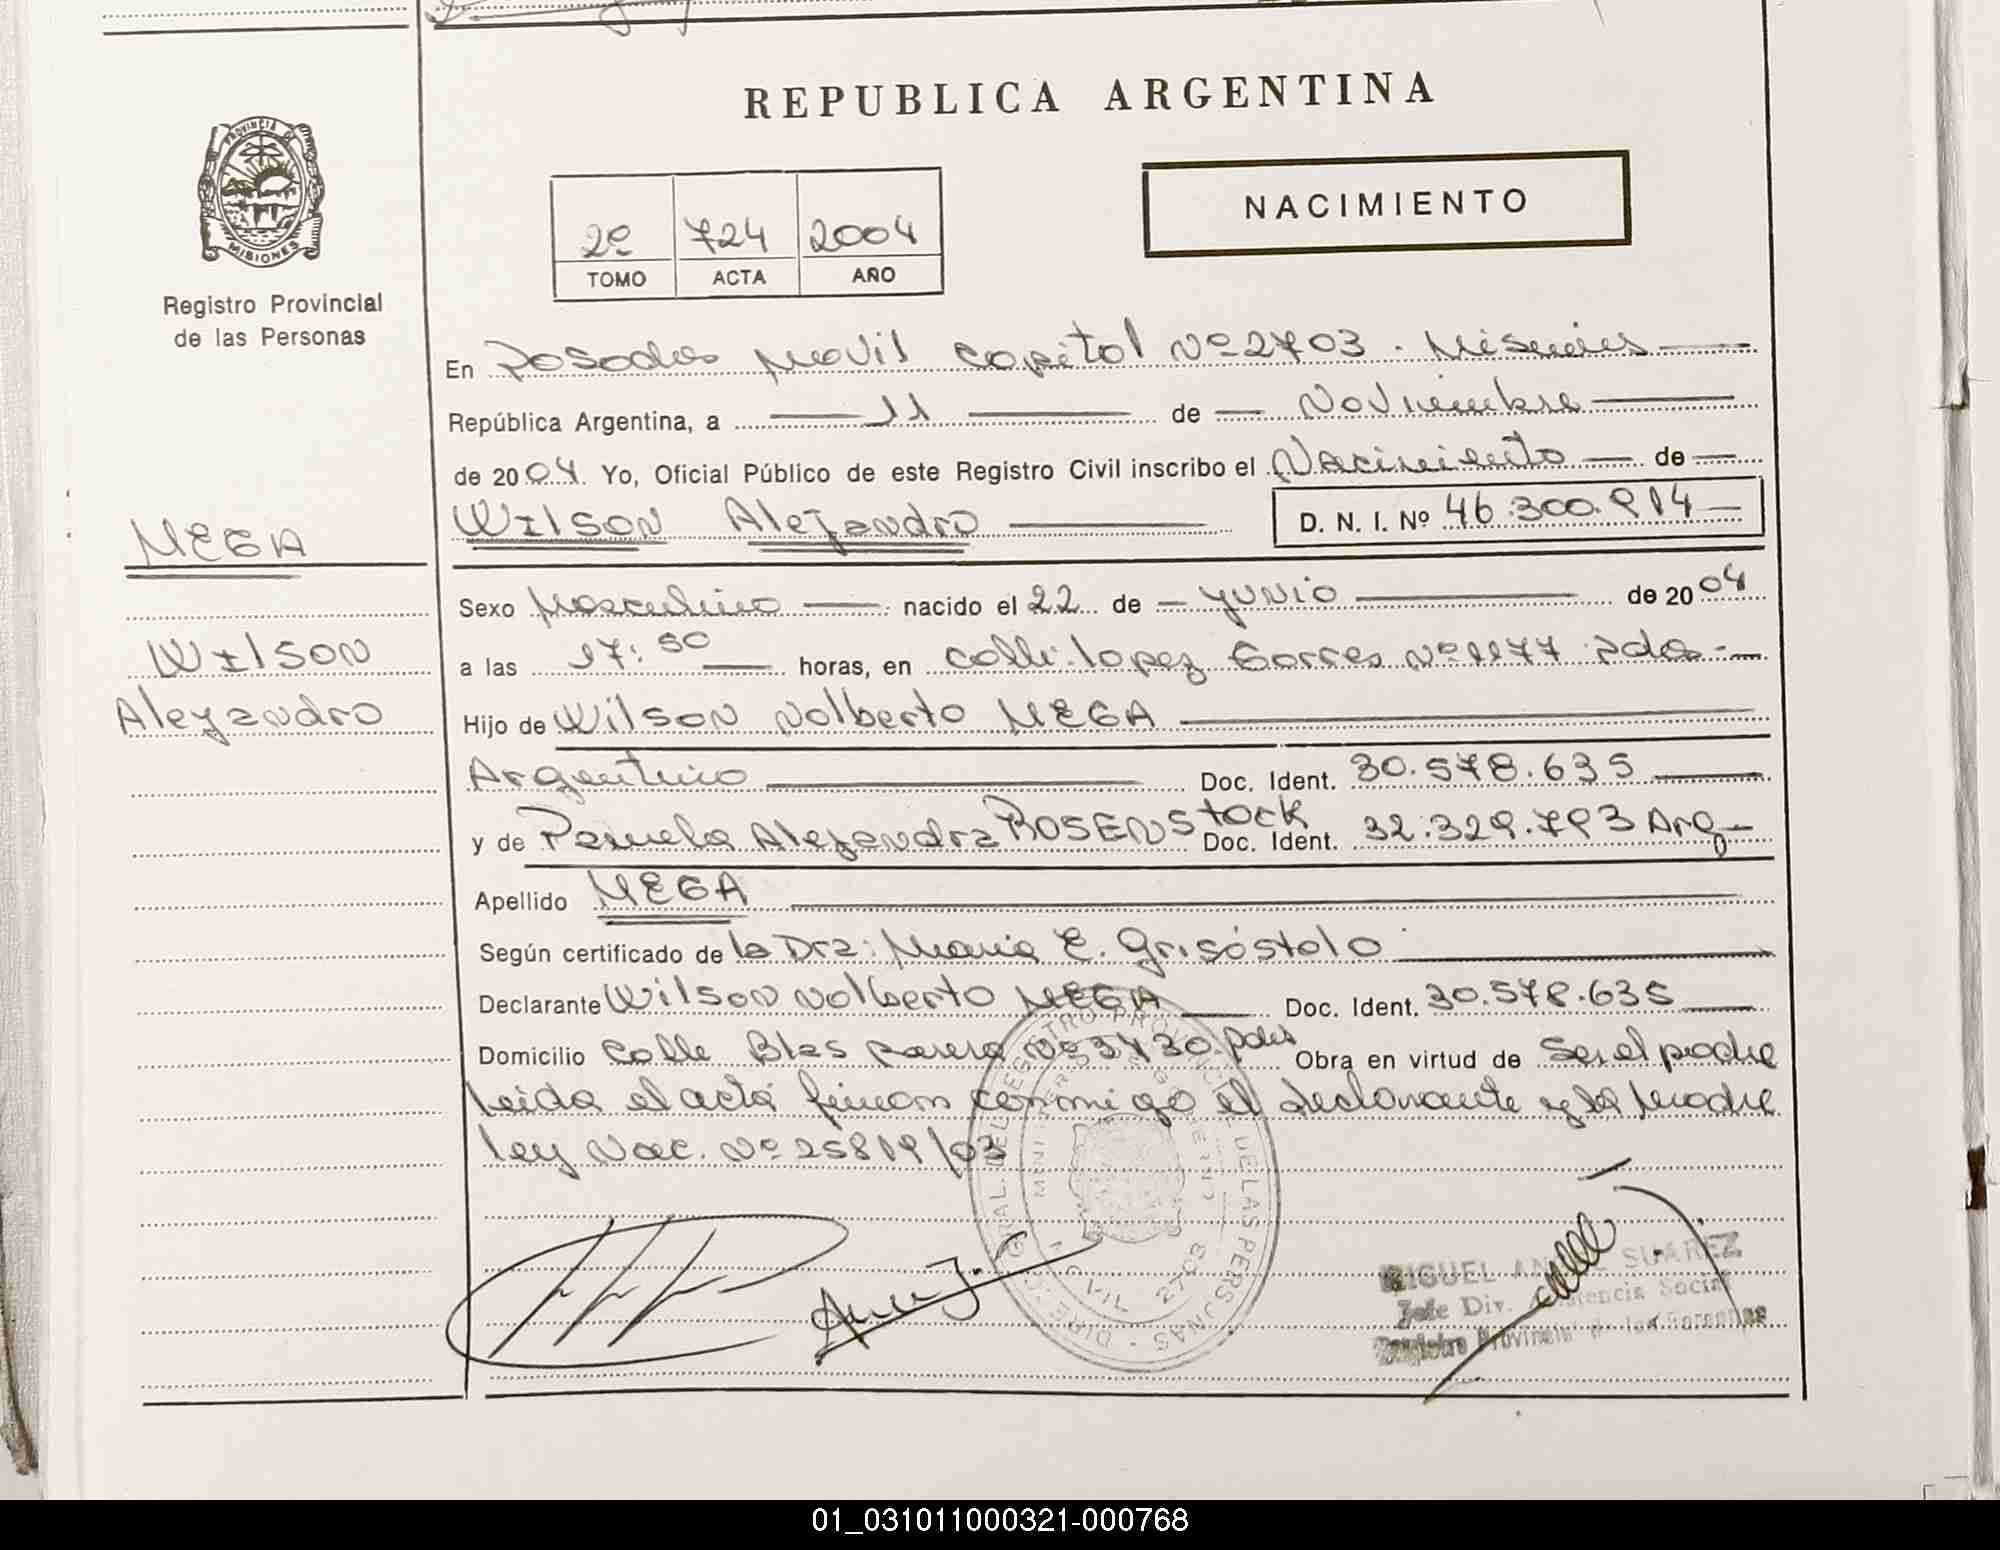 REPUBLICA ARGENTINA
PROVINCIA DE
MISIONES
Registro Provincial
de las Personas
NACIMIENTO
2º 724 2004
TOMO ACTA AÑO
En Posadas Movil Capital Nº 2703 - Misiones
República Argentina, a 11 de Noviembre
de 2004. Yo, Oficial Público de este Registro Civil inscribo el Nacimiento de
Wilson Alejandro D. N. I. Nº 46.300.914
MEGA
Wilson
Alejandro
Sexo Masculino nacido el 22 de Junio de 2004
a las 17:50 horas, en Calle: Lopez Torres Nº 1177 Pdas-
Hijo de Wilson Nolberto MEGA
Argentino Doc. Ident. 30.578.635
y de Pamela Alejandra ROSENSTOCK Doc. Ident. 32.329.793 Arg-
Apellido MEGA
Según certificado de la Dra: Maria E. Grisóstolo
Declarante Wilson Nolberto MEGA Doc. Ident. 30.578.635
Domicilio Calle Blas Parera Nº 3430 Pdas Obra en virtud de Ser el padre
Leida el acta firman conmigo el declarante y la Madre
ley Nac. Nº 25819/03
MIGUEL SUAREZ
Jefe Div. Asistencia Social
Registro Provincial de las Personas
01_031011000321-000768